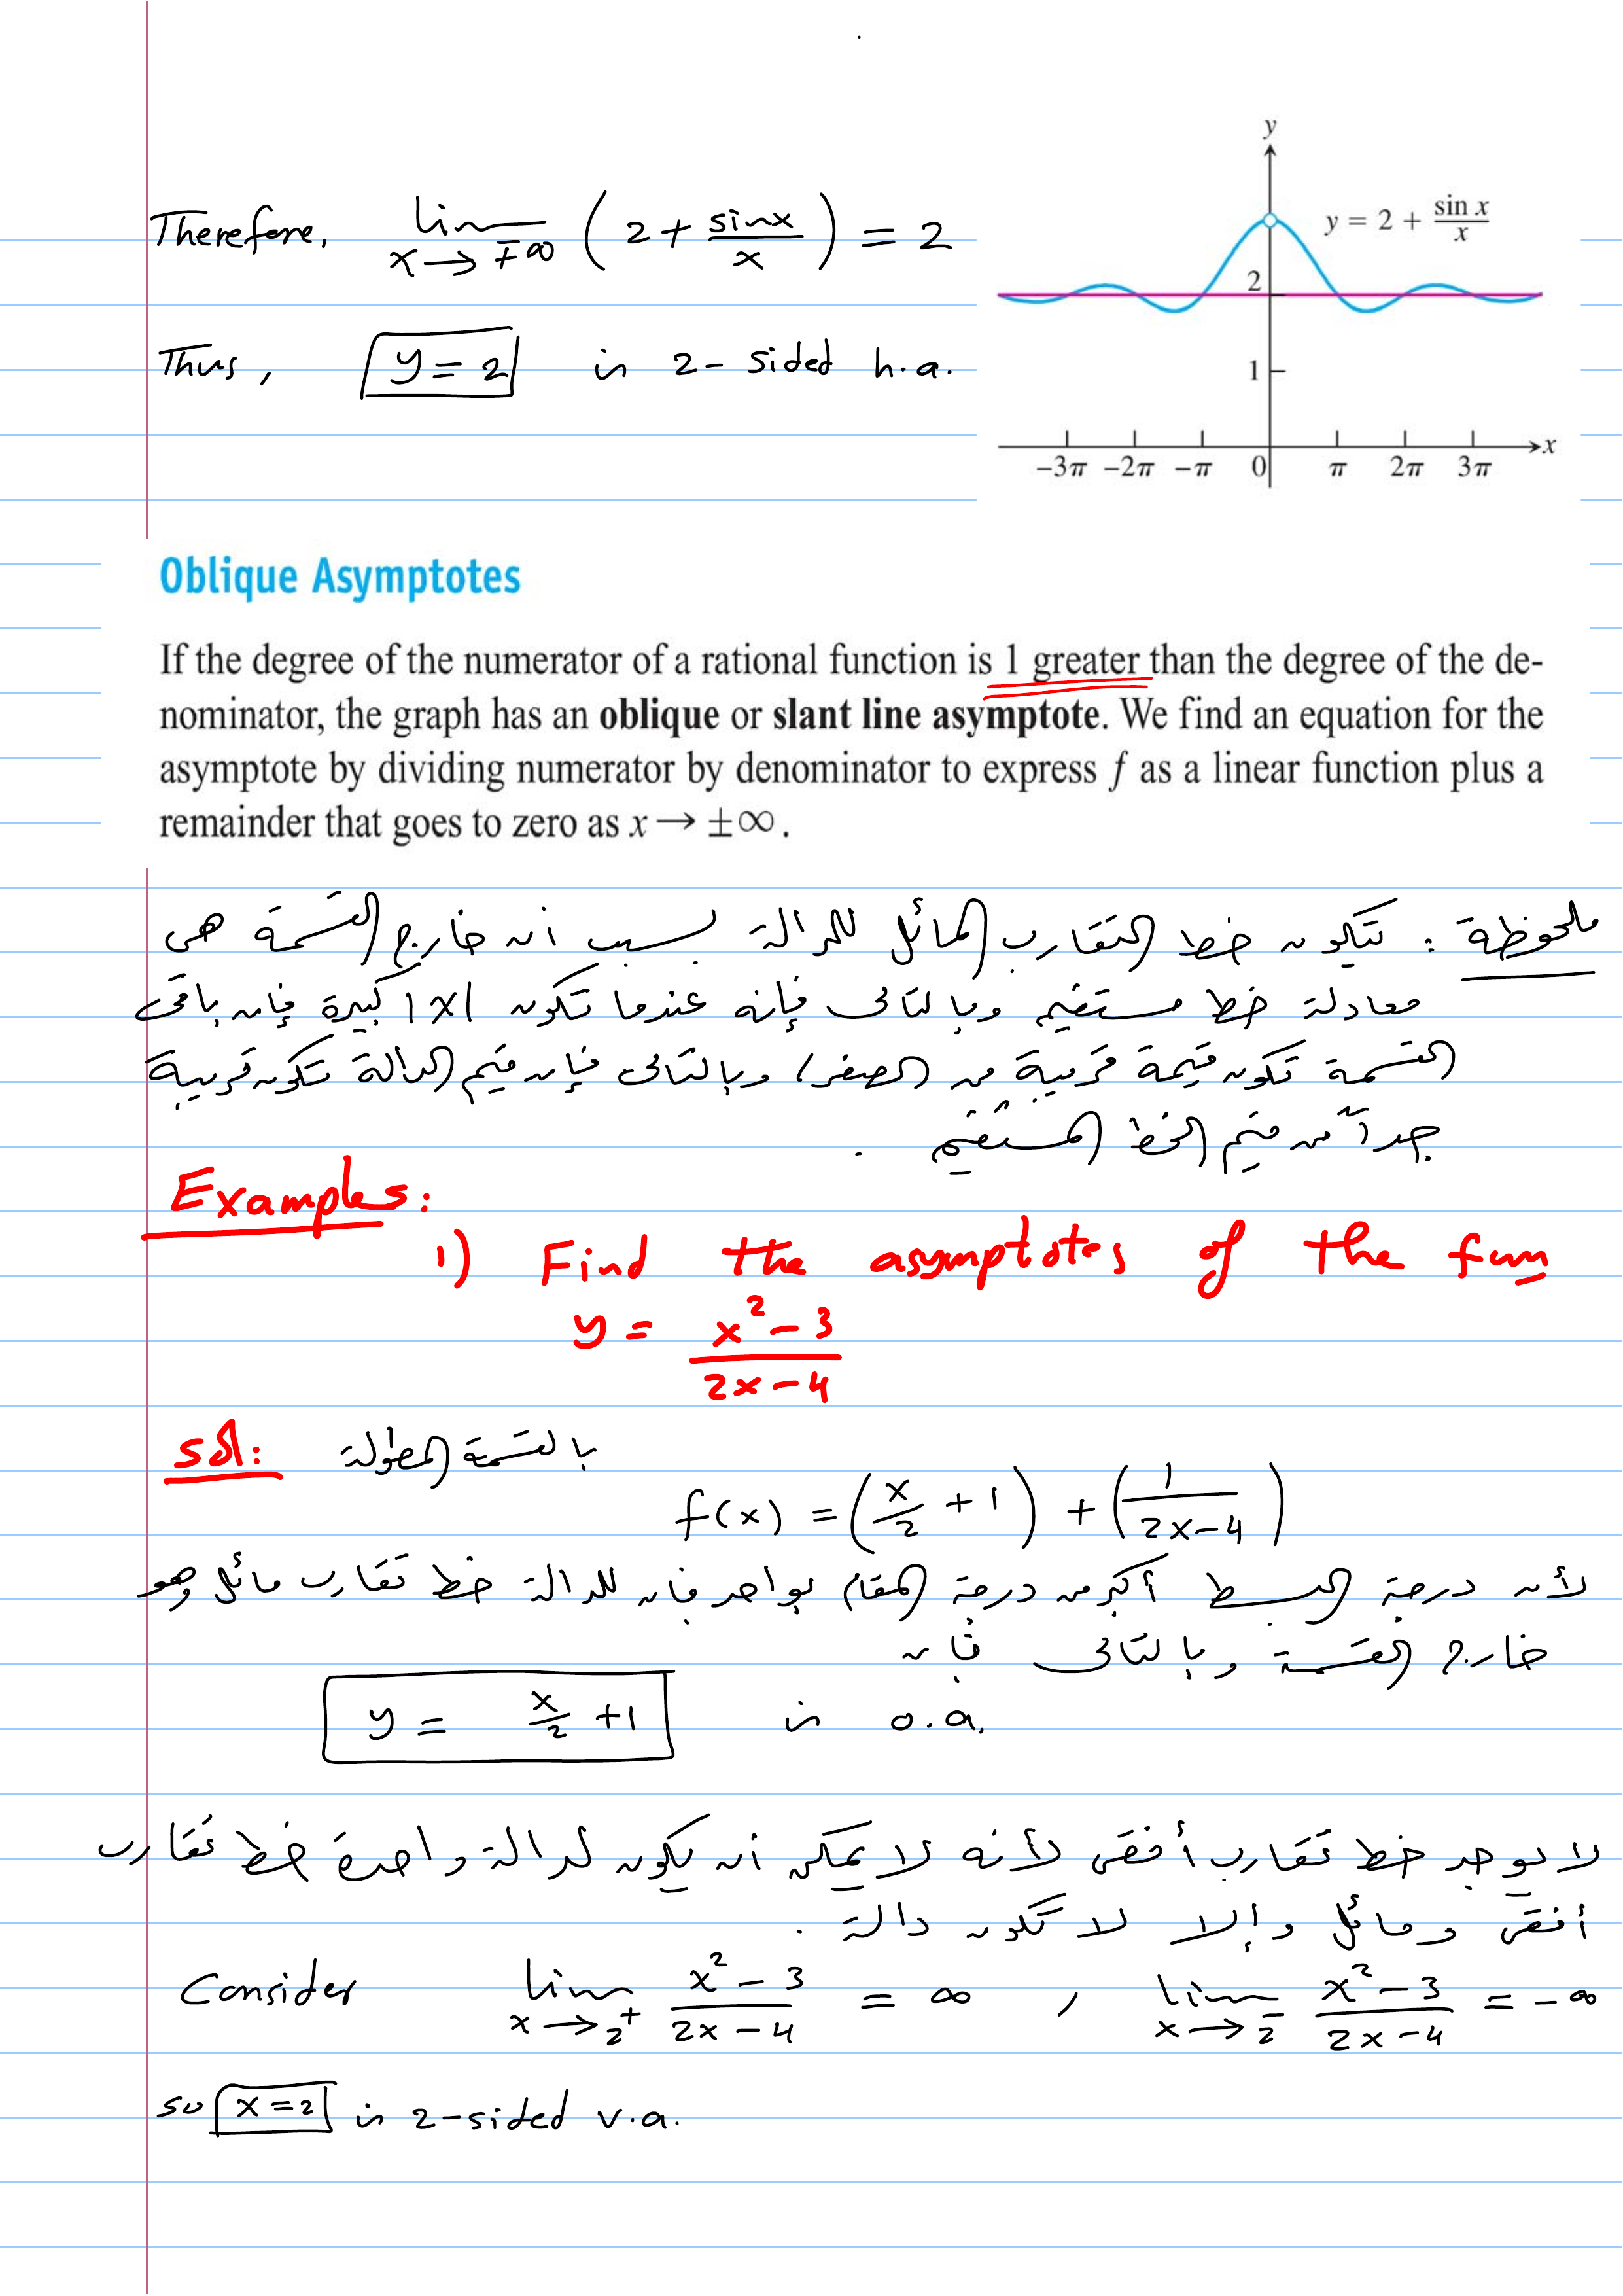 Therefore, lim x→∓∞ (2 + sinx/x) = 2
Thus, y = 2 is 2-sided h.a.
y
y = 2 + sin x/x
2
1
−3π −2π −π 0 π 2π 3π x
Oblique Asymptotes
If the degree of the numerator of a rational function is 1 greater than the degree of the de-
nominator, the graph has an oblique or slant line asymptote. We find an equation for the
asymptote by dividing numerator by denominator to express f as a linear function plus a
remainder that goes to zero as x → ±∞.
ملحوظة : تتكون خط التقارب المائل للدالة بسبب أن خارج القسمة هى
معادلة خط مستقيم وبالتالى فإنه عندما تكون |x| كبيرة فإن باقى
القسمة تكون قيمة قريبة من الصفر، وبالتالى فإن قيم الدالة تكون قريبة
جداً من قيم الخط المستقيم .
Examples:
1) Find the asymptotes of the fun
y = x² − 3 / 2x − 4
sol: بالقسمة المطولة
f(x) = (x/2 + 1) + (1/2x−4)
لأن درجة البسط أكبر من درجة المقام بواحد فإن للدالة خط تقارب مائل وهو
خارج القسمة وبالتالى فإن
y = x/2 + 1 is o.a.
لا يوجد خط تقارب أفقى لأنه لا يمكن أن يكون لدالة واحدة خط تقارب
أفقى ومائل وإلا لا تكون دالة .
Consider lim x→2⁺ x² − 3 / 2x − 4 = ∞ , lim x→2⁻ x² − 3 / 2x − 4 = −∞
so x = 2 is 2-sided v.a.